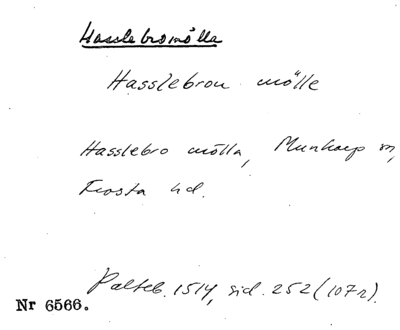 Hasslebromölla
Hasslebrou mölle
Hasslebro mölla, Munkarp sn,
Frosta hd.
Palteb. 1514, sid. 252 (107r).
Nr 6566.